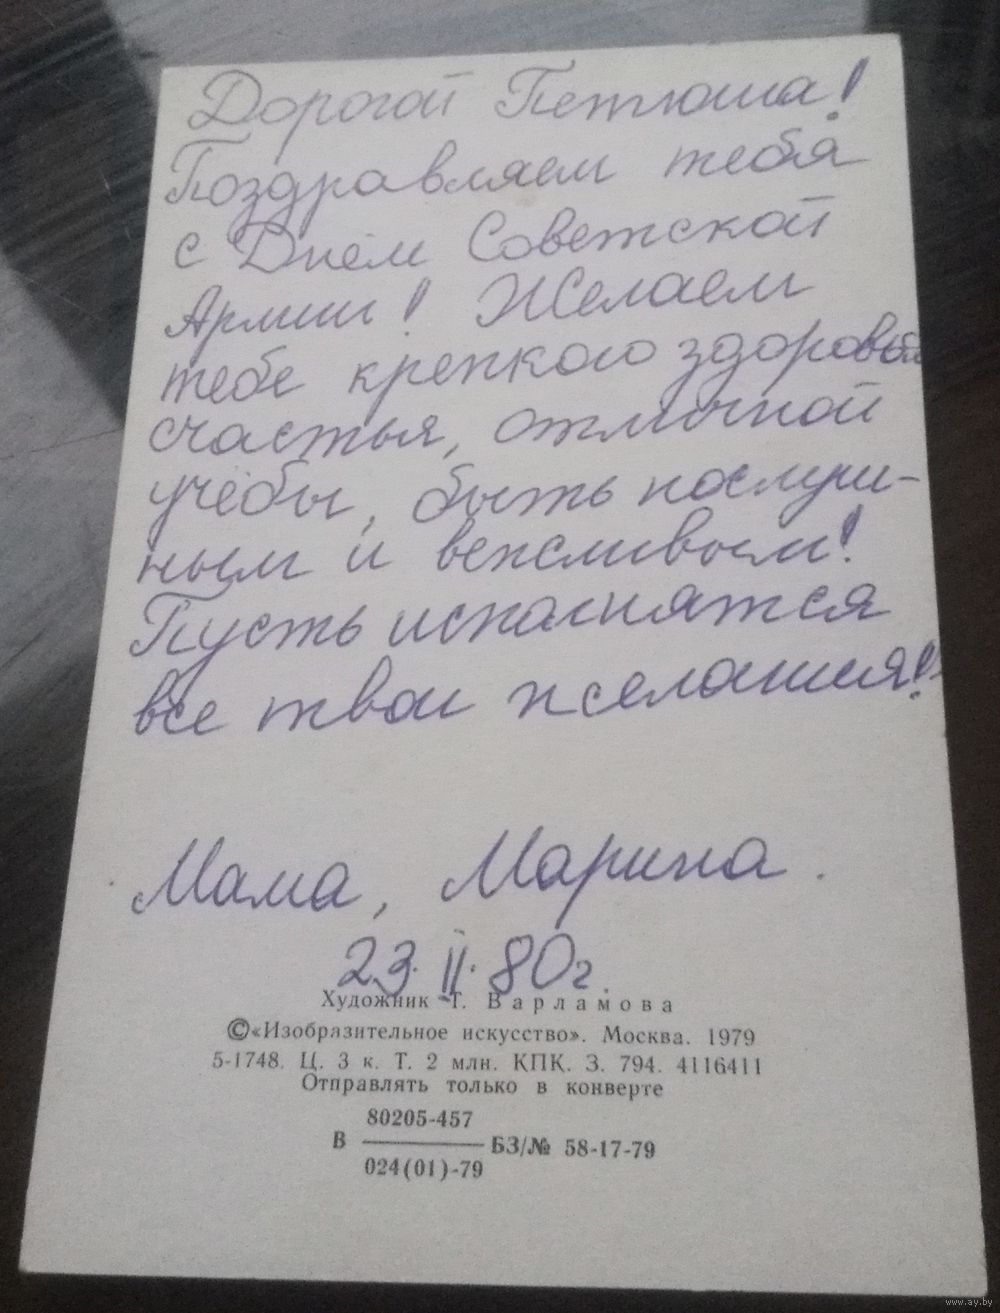 Дорогой Петюша!
Поздравляем тебя
с Днём Советской
Армии! Желаем
тебе крепкого здоровья
счастья, отличной
учёбы, быть послуш-
ным и вежливым!
Пусть исполнятся
все твои желания!
Мама, Марина.
23.II.80г.
Художник Т. Варламова
©«Изобразительное искусство». Москва. 1979
5-1748. Ц. 3 к. Т. 2 млн. КПК. З. 794. 4116411
Отправлять только в конверте
80205-457
В БЗ/№ 58-17-79
024(01)-79
www.ay.by